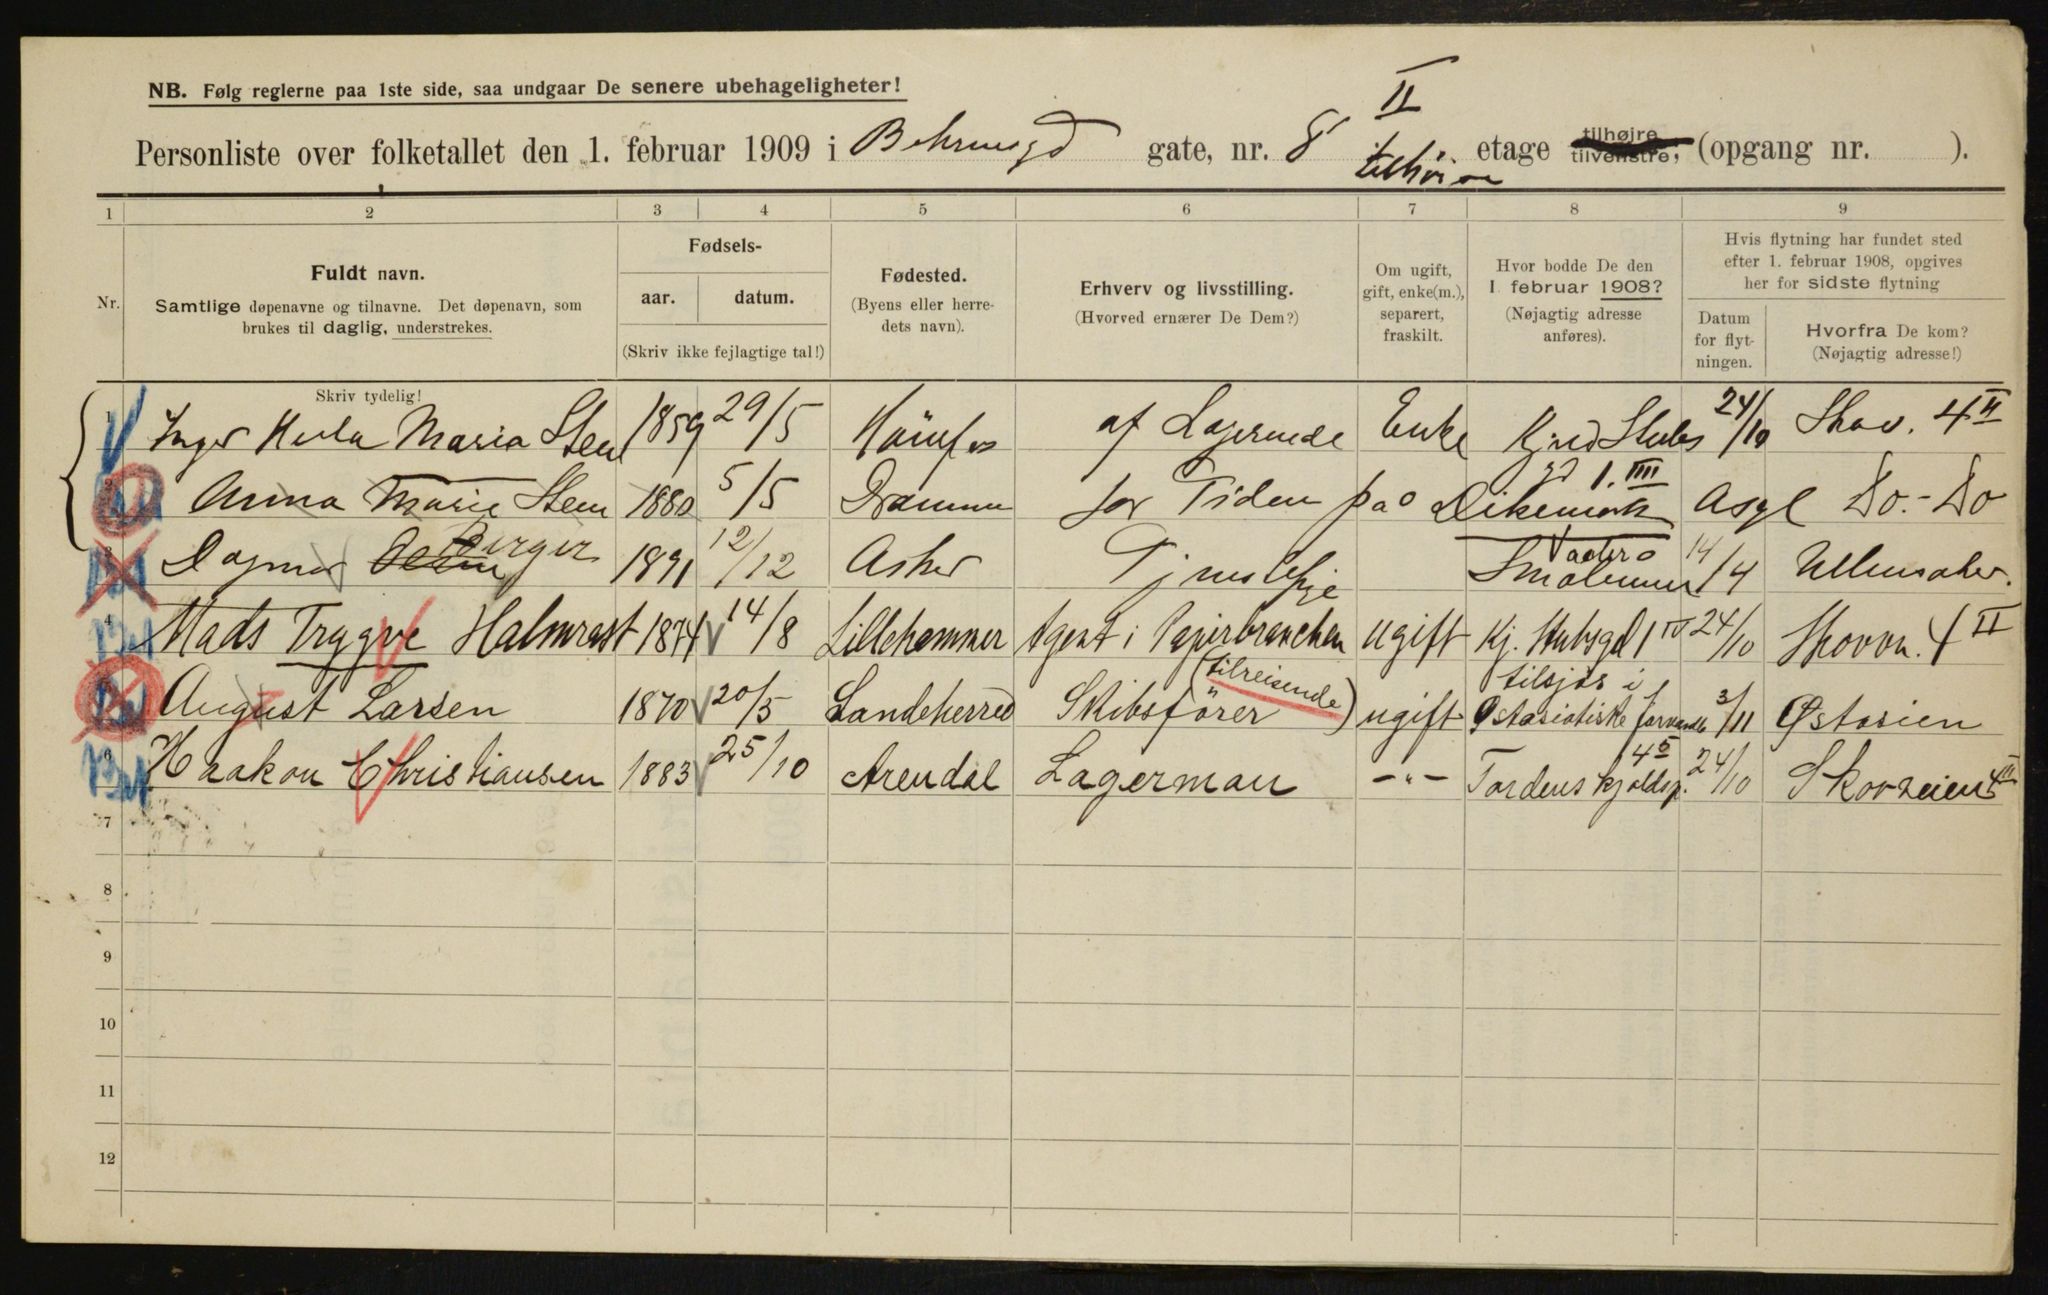 NB. Følg reglerne paa 1ste side, saa undgaar De senere ubehageligheter!
II
Personliste over folketallet den 1. februar 1909 i Behrensgd gate, nr. 8 etage tilhøjre tilvenstre; (opgang nr. ).
tilhöire
1 2 3 4 5 6 7 8 9
Nr.
Fuldt navn.
Samtlige døpenavne og tilnavne. Det døpenavn, som
brukes til daglig, understrekes.
Fødsels-
aar. datum.
(Skriv ikke fejlagtige tal!)
Fødested.
(Byens eller herre-
dets navn).
Erhverv og livsstilling.
(Hvorved ernærer De Dem?)
Om ugift,
gift, enke(m.),
separert,
fraskilt.
Hvor bodde De den
1. februar 1908?
(Nøjagtig adresse
anføres).
Hvis flytning har fundet sted
efter 1. februar 1908, opgives
her for sidste flytning
Datum
for flyt-
ningen.
Hvorfra De kom?
(Nøjagtig adresse!)
Skriv tydelig!
1 Inger Maria Steen 1859 29/5 Hönefos af Logerende Enke Kjeld Stubs 24/10 Skov. 4 II
gd 1. IIII
2 Anna Marie Steen 1880 5/5 Drammen for Tiden paa Dikemark Asyl Do.- Do
Berger
3 Dagmar 1891 12/12 Asker Tjenestepige 14/4 Ullensaker.
4 Mads Trygve Halmrast 1874 14/8 Lillehammer Agent i Papirbranchen ugift Kj. Stubsgd 1 IV 24/10 Skovvn. 4 II
(tilreisende) tilsjøs i
5 August Larsen 1870 20/5 Landeherred Skibsförer ugift Østasiatiske farvande 3/11 Østasien
6 Haakon Christiansen 1883 25/10 Arendal Lagerman -"- Tordenskjoldsp. 45 24/10 Skovveien 4 II
7
8
9
10
11
12